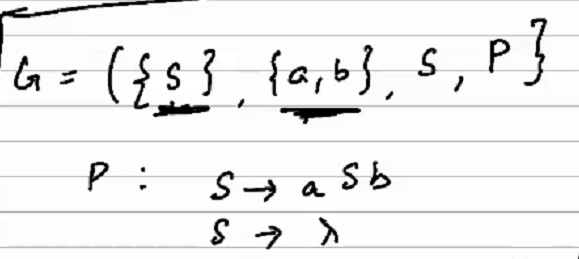 G = ({S}, {a,b}, S, P}
P : S → a S b
S → λ